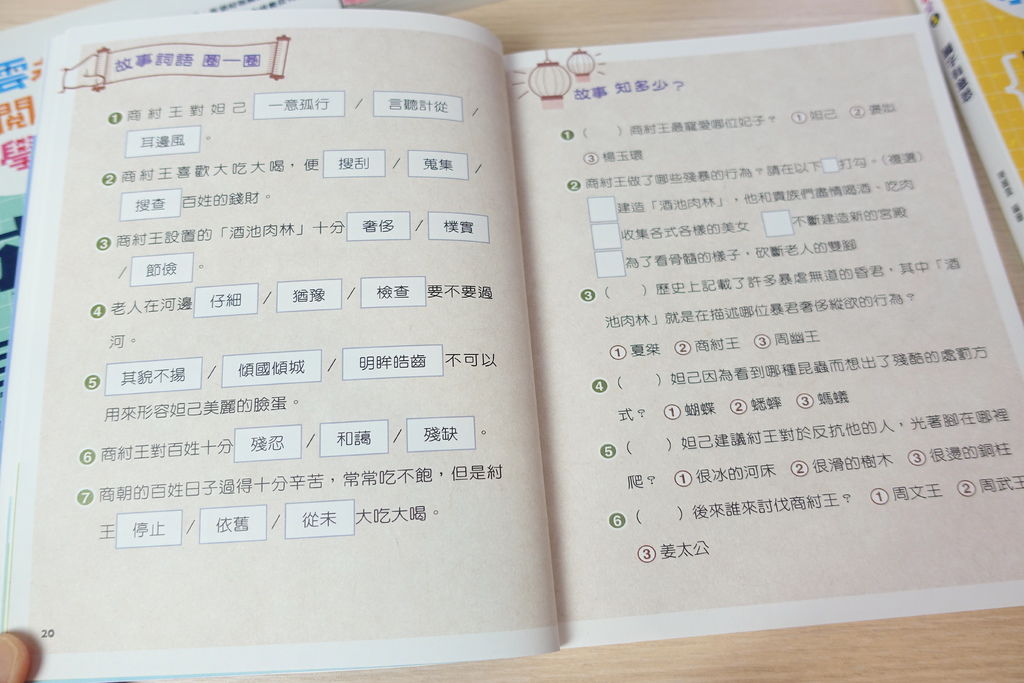 故事詞語 圈一圈
❶商紂王對妲己 一意孤行 / 言聽計從 /
耳邊風 。
❷商紂王喜歡大吃大喝，便 搜刮 / 蒐集 /
搜查 百姓的錢財。
❸商紂王設置的「酒池肉林」十分 奢侈 / 樸實
/ 節儉 。
❹老人在河邊 仔細 / 猶豫 / 檢查 要不要過
河。
❺ 其貌不揚 / 傾國傾城 / 明眸皓齒 不可以
用來形容妲己美麗的臉蛋。
❻商紂王對百姓十分 殘忍 / 和藹 / 殘缺 。
❼商朝的百姓日子過得十分辛苦，常常吃不飽，但是紂
王 停止 / 依舊 / 從未 大吃大喝。
20
故事 知多少？
❶（　）商紂王最寵愛哪位妃子？ ①妲己 ②褒姒
③楊玉環
❷商紂王做了哪些殘暴的行為？請在以下□打勾。（複選）
□建造「酒池肉林」，他和貴族們盡情喝酒、吃肉
□收集各式各樣的美女 □不斷建造新的宮殿
□為了看骨髓的樣子，砍斷老人的雙腳
❸（　）歷史上記載了許多暴虐無道的昏君，其中「酒
池肉林」就是在描述哪位暴君奢侈縱欲的行為？
①夏桀 ②商紂王 ③周幽王
❹（　）妲己因為看到哪種昆蟲而想出了殘酷的處罰方
式？ ①蝴蝶 ②蟋蟀 ③螞蟻
❺（　）妲己建議紂王對於反抗他的人，光著腳在哪裡
爬？ ①很冰的河床 ②很滑的樹木 ③很燙的銅柱
❻（　）後來誰來討伐商紂王？ ①周文王 ②周武王
③姜太公
雲
閱
學